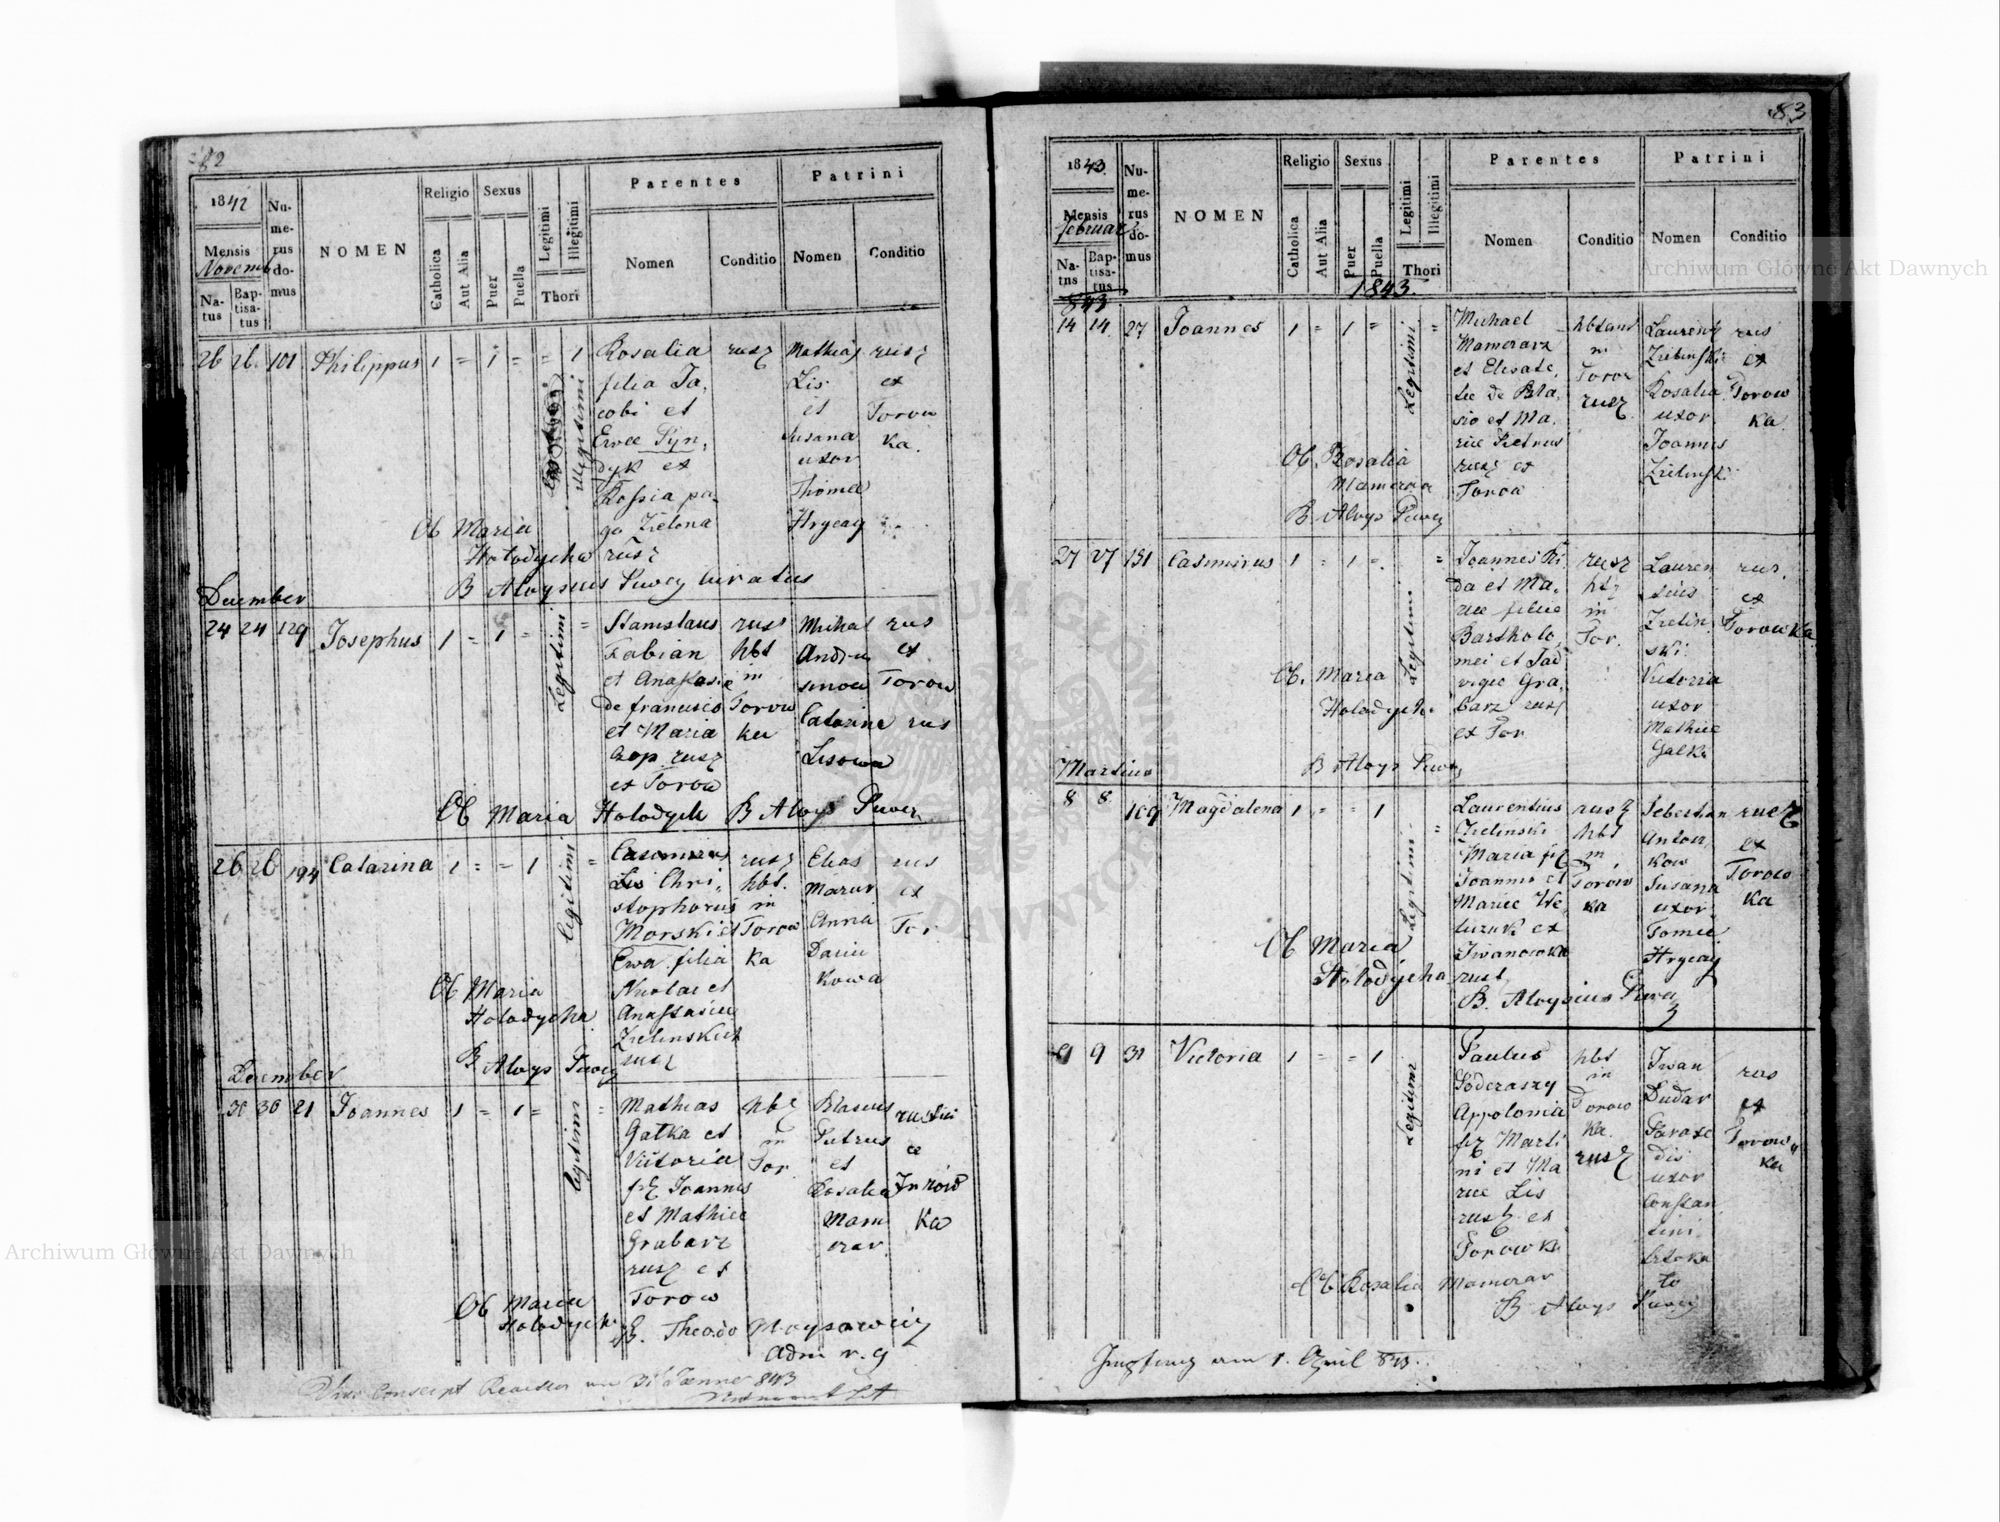 82
1842
Mensis
Novemb
Na-
tus
Bap-
tisa-
tus
Nu-
me-
rus
do-
mus
NOMEN
Religio
Catholica
Aut Alia
Sexus
Puer
Puella
Legitimi
Illegitimi
Thori
Parentes
Nomen
Conditio
Patrini
Nomen
Conditio
26 26 101 Philippus 1 = 1 = = 1
illegitimi
Rosalia
filia Ja,
cobi et
Ewee Pyn,
dyk ex
Rossia pa
go Zielona
rusz
rusz
Mathias
Lis
et
Susana
uxor
Thomee
Hrycay
rusz
ex
Torow
ka.
Ob Maria
Holodycha
B Aloysius Puwcz Curatus
December
24 24 129 Josephus 1 = 1 = =
Legitimi
Stanislaus
Fabian
et Anastasie
de francisco
et Maria
Gop rusz
ex Torow
russ
hbt
in
Torow
ka
Michal
Andru
sinow
Catarine
Lisowa
rus
ex
Torow
rus
Ob Maria Holodych B Aloys Puwcz
26 26 194 Catarina 1 = - 1 =
legitimi
Casemirus
Lis Chri,
stophorus
Morski et
Ewa filia
Nicolai et
Anastasiee
Zielinskich
rusz
rusz
hbt.
in
Torow
ka
Elias
Marur
Anna
Daniu
kowa
rus
ex
Tor
Ob Maria
Holodycha
B Aloys Puwcz
December
30 30 21 Joannes 1 = 1 = =
legitimi
Mathias
Galka et
Victoria
fil Joannis
et Mathiee
Grabarz
rusz ex
Torow
hbt
in
Tor
Blasius
Pietrus
et
Rosalia
Mam
orar.
ex
ka
Ob Maria
Holodych
B. Theodo
Adm r. g
Concept 31 Janner 843
83
1843.
Mensis
februar
Na-
tus
Bap-
tisa-
tus
843
Nu-
me-
rus
do-
mus
NOMEN
Religio
Catholica
Aut Alia
Sexus
Puer
Puella
Legitimi
Illegitimi
Thori
1843.
Parentes
Nomen
Conditio
Patrini
Nomen
Conditio
14 14 27 Joannes 1 = 1 = =
Legitimi
Michael
Mamorarz
et Elisabe,
tee de Bla,
sio et Ma,
riee Pietrus
rusz ex
Torow
hbtant
in
Torow
rusz
Laurenty
Zielinski
Rosalia
uxor
Joannis
Zielinski
rus
ex
Torow
ka.
Ob Rosalia
Mamoraa
B Aloys Puwcz
27 27 131 Casimirus 1 = 1 = =
Legitimi
Joannes Ri
da et Ma,
riee filiee
Bartholo,
mei et Jad
vigee Gra,
barz rusz
ex Tor
rusz
hbt
in
Tor.
Lauren
tius
Zielin
ski
Victoria
uxor
Mathiee
Galka
rus.
ex
Torowka
Ob. Maria
Holodycha
B Aloys Puwcz
Martius
8 8 109 Magdalena 1 = = 1 =
Legitimi
Laurentius
Zielinski
Maria fil
Joannis et
Mariee We
luzuk ex
Iwanowka
rusz
rusz
hbt
in
Torow
ka
Sebestian
Anton
kow
Susana
uxor
Tomee
Hrycay
rusz
ex
Torow
ka
Ob Maria
Holodycha
B. Aloysius Puwcz
9 9 31 Victoria 1 = = 1
Legitimi
Paulus
Poderaszy
Appolonia
fil Marti
ni et Ma
riee Lis
rusz ex
Torowka
hbt
in
Torow
ka.
rusz
Iwan
Dudar
Paraxe
dis
uxor
Constan
tini
rus
ex
Torow"
ka
Ob Rosalia Mamorar
B Aloys Puwcz
am 1. April 843.
Archiwum Główne Akt Dawnych
Archiwum Główne Akt Dawnych